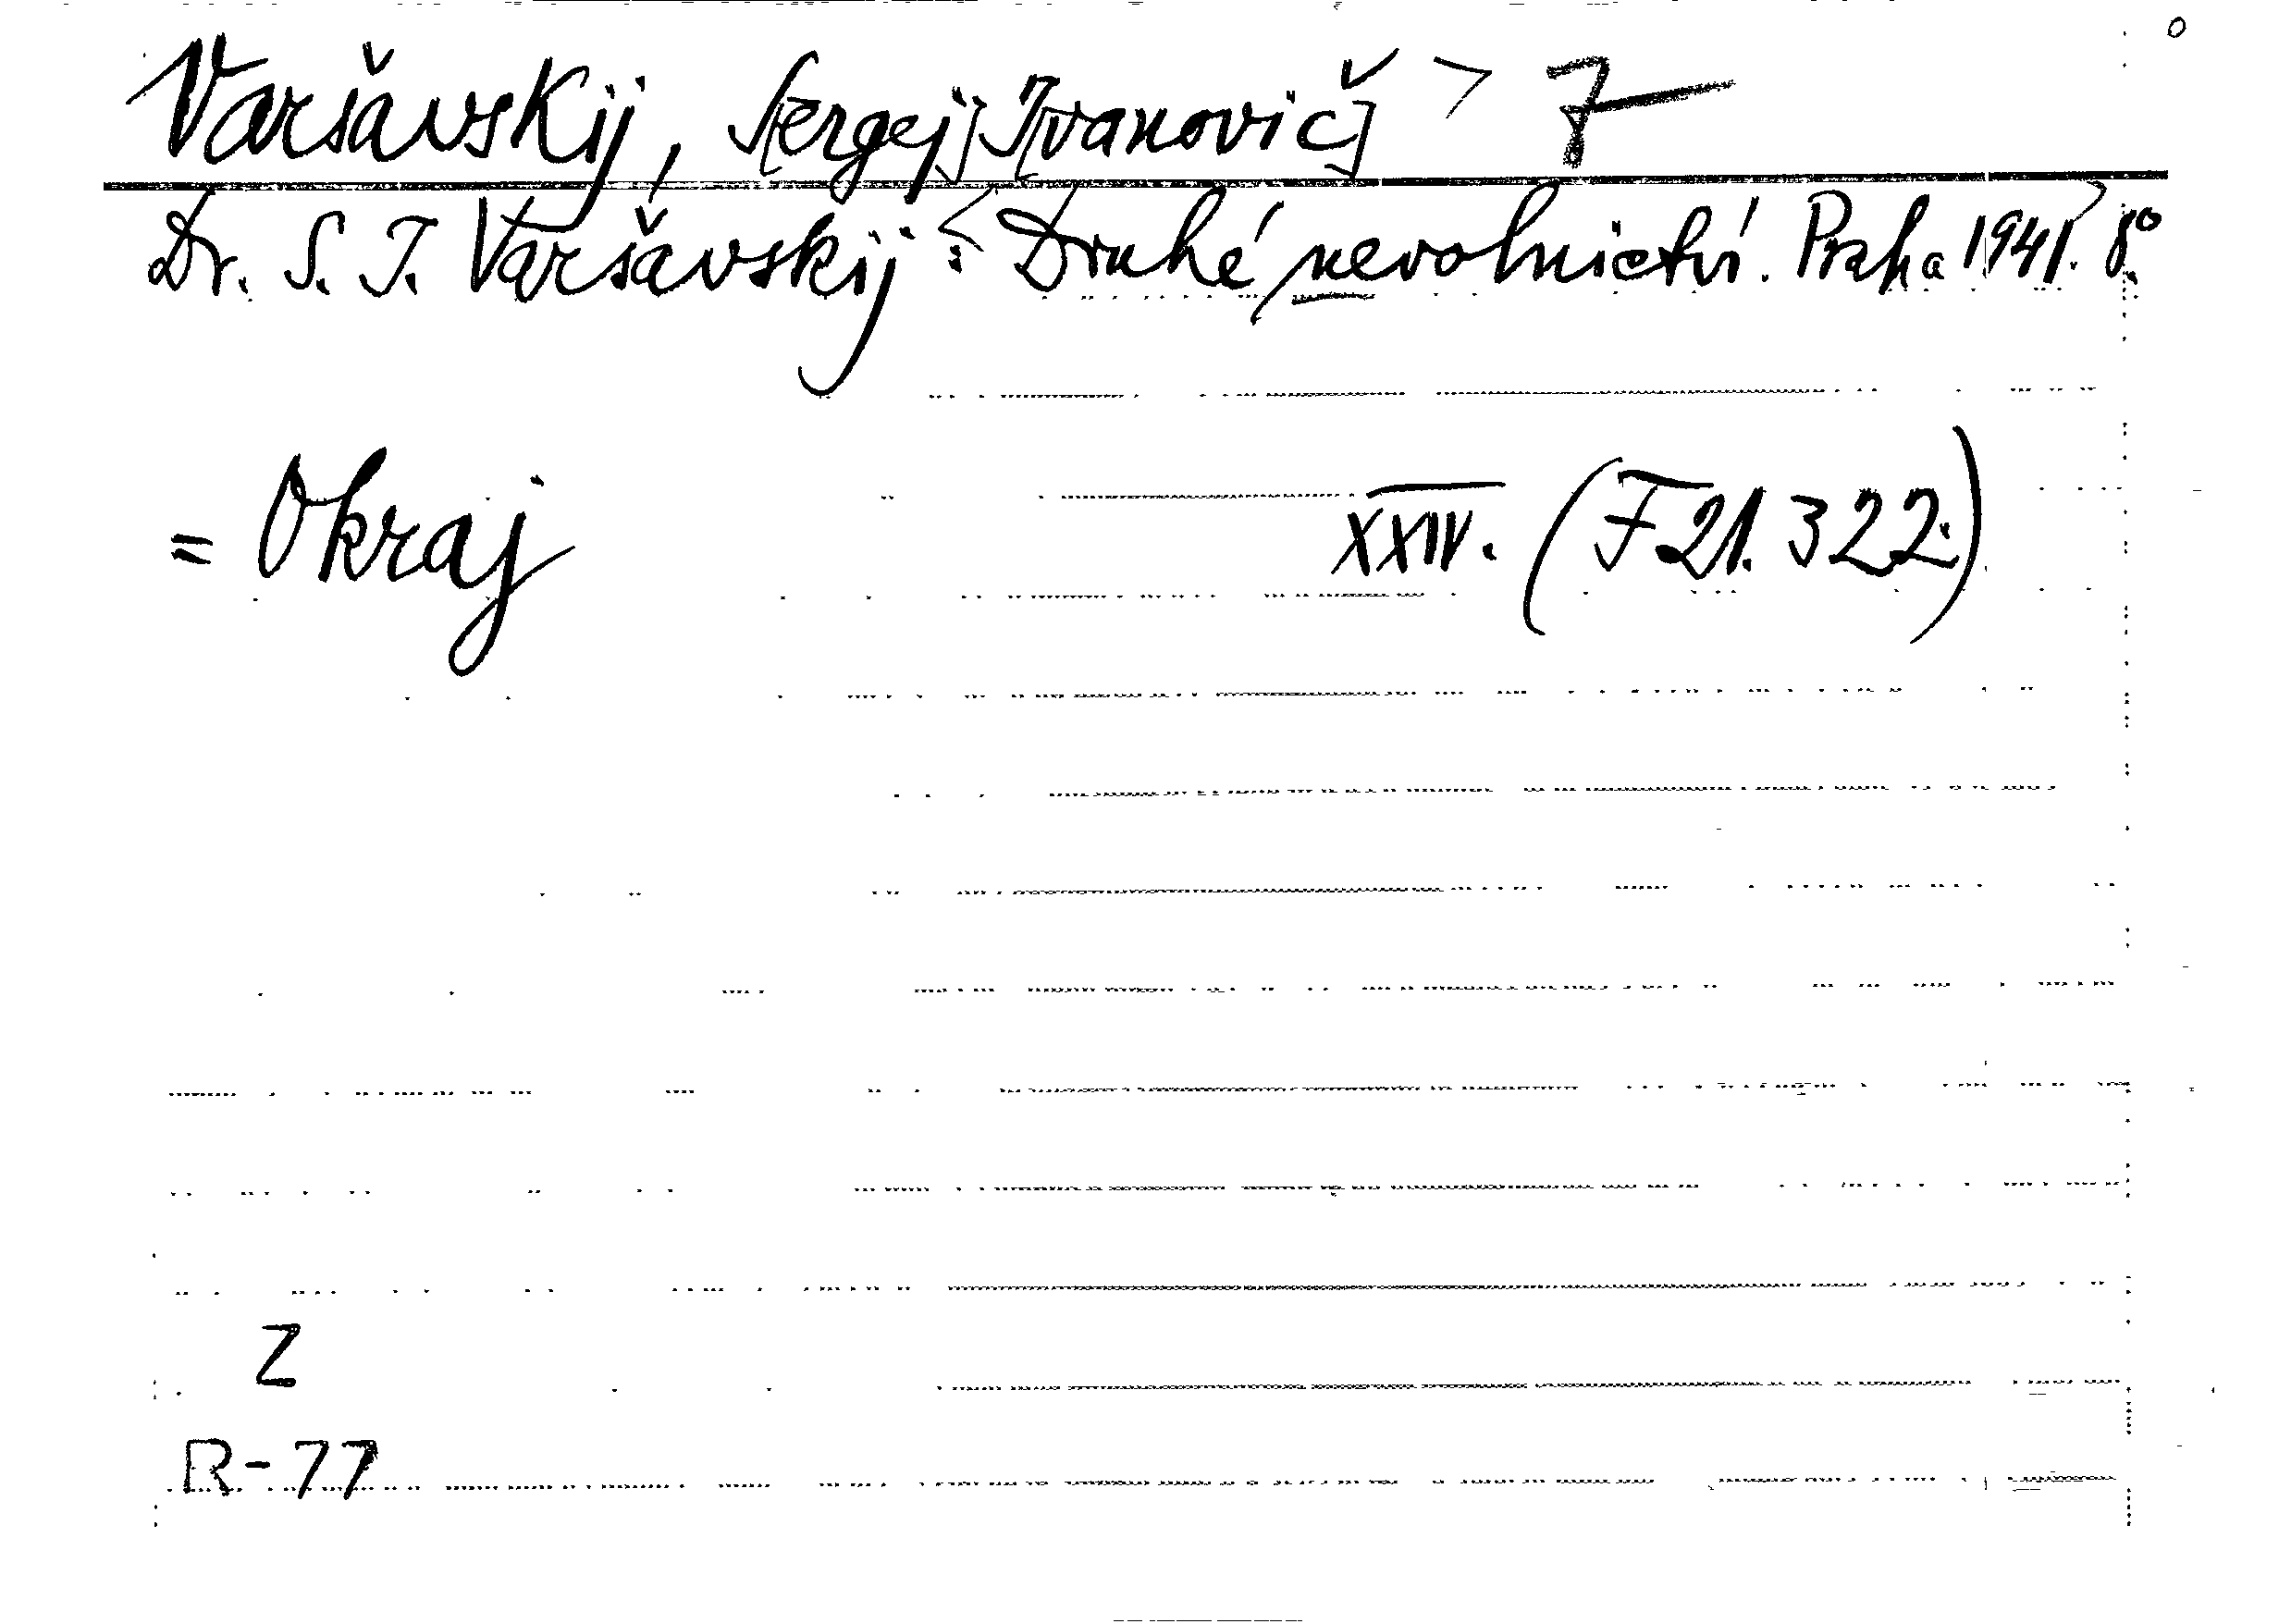 Varšavskij, S[ergej] I[vanovič] > 7
Dr. S. I. Varšavskij: < Druhé nevolnictví. Praha 1941. > 8°.
= Okraj XXIV. (F 21.322.)
Z
R-77